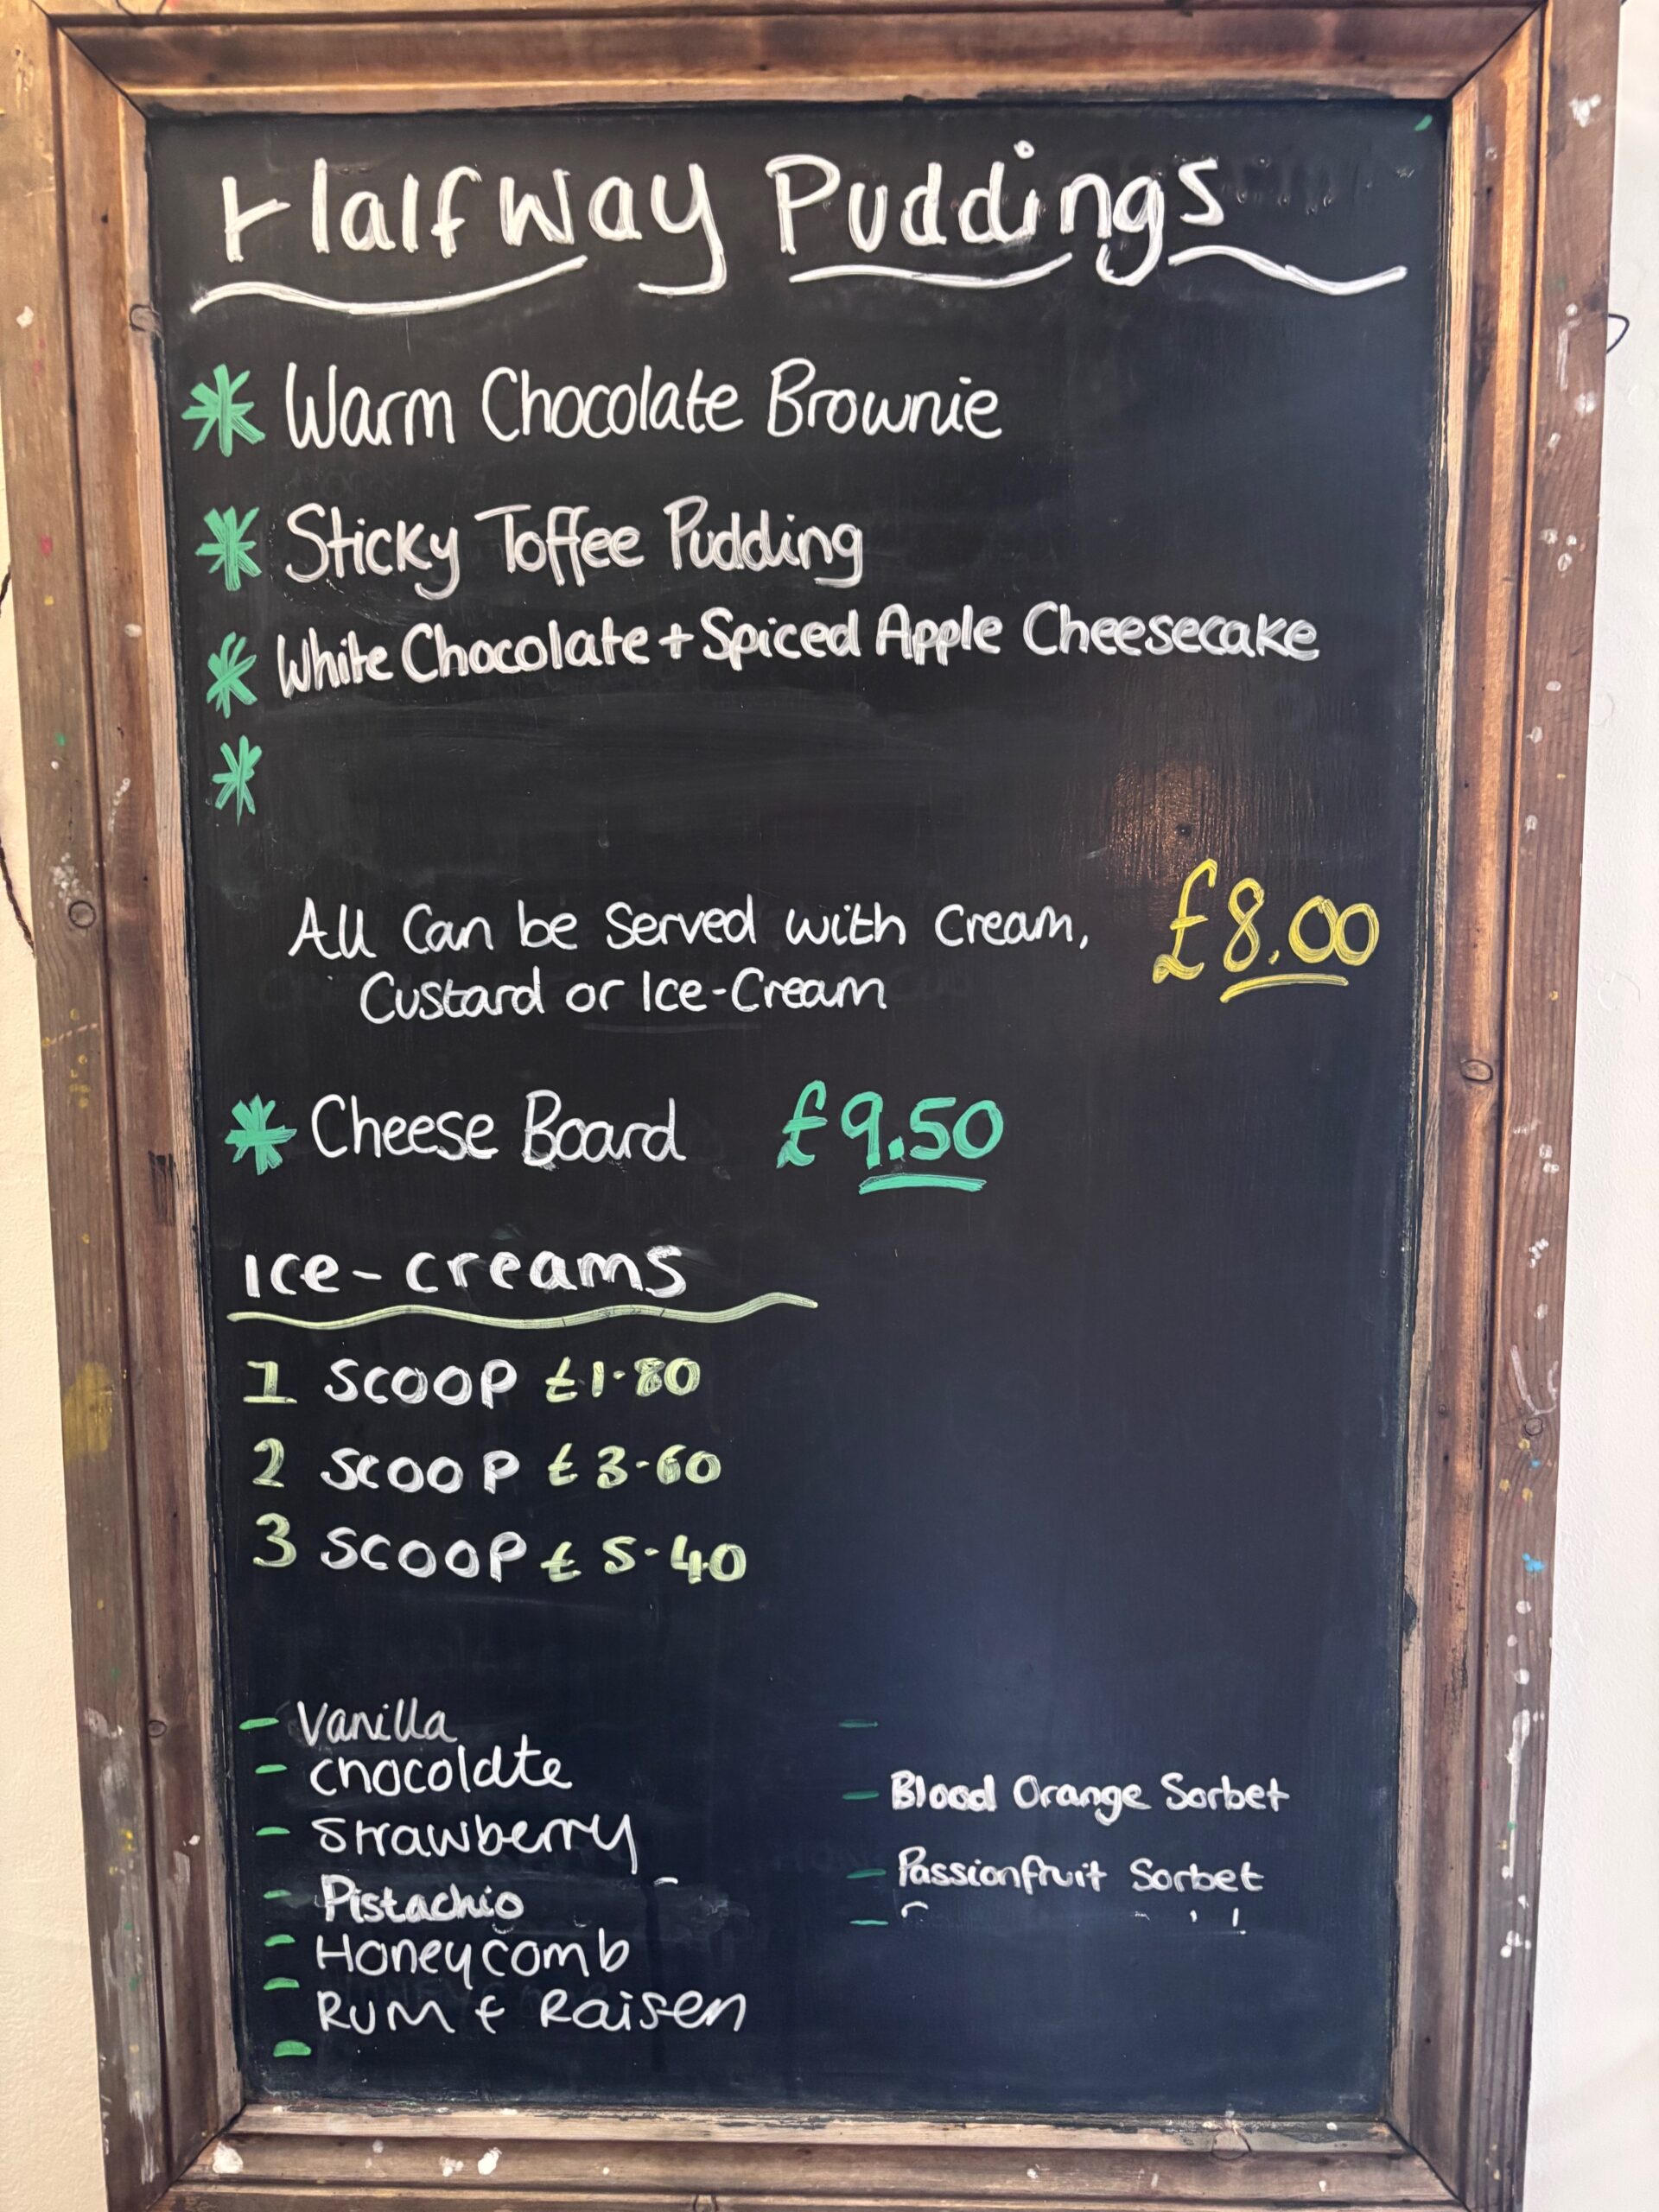 Halfway Puddings
* Warm Chocolate Brownie
* Sticky Toffee Pudding
* White Chocolate + Spiced Apple Cheesecake
*
All Can be Served with Cream, £8.00
Custard or Ice-Cream
* Cheese Board £9.50
Ice-creams
1 SCOOP £1.80
2 SCOOP £3.60
3 SCOOP £5.40
- Vanilla
- chocolate
- Strawberry
- Pistachio
- Honeycomb
- RUM & Raisen
-
-
- Blood Orange Sorbet
- Passionfruit Sorbet
-